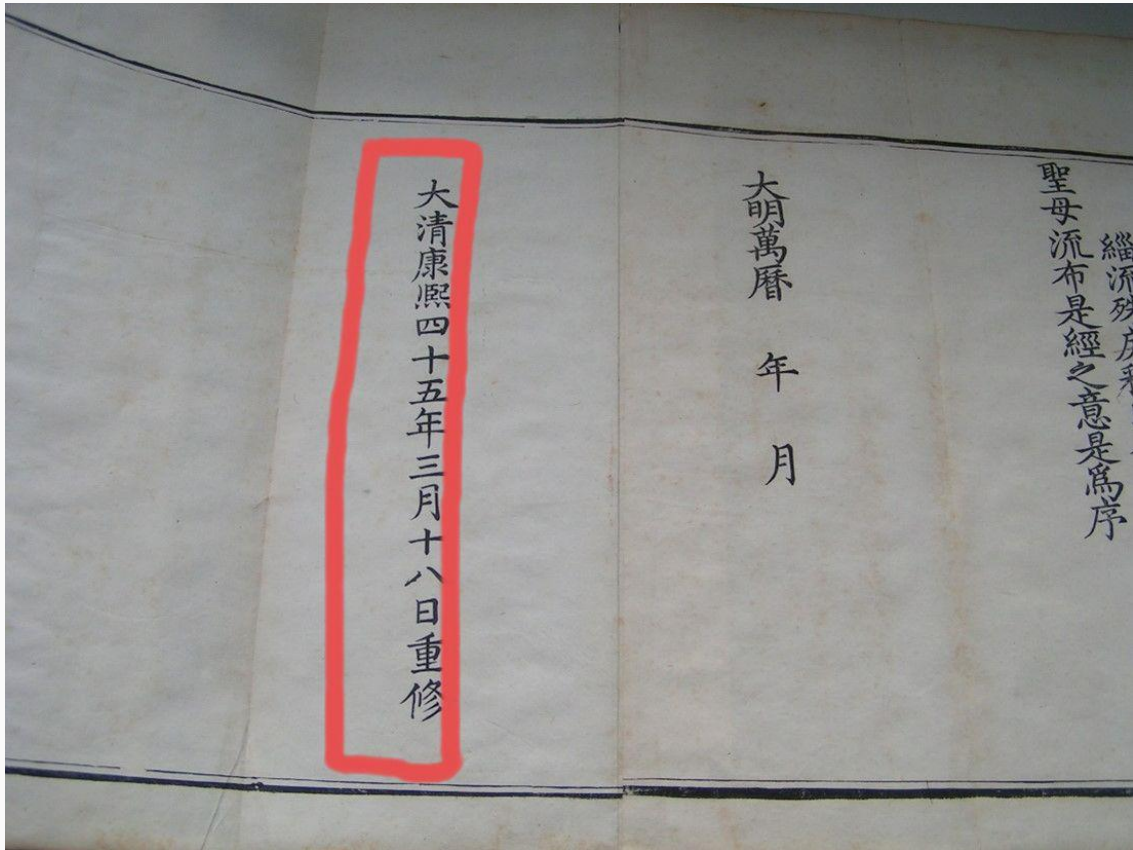 緇流
聖母流布是經之意是爲序
大明萬曆 年 月
大清康熙四十五年三月十八日重修